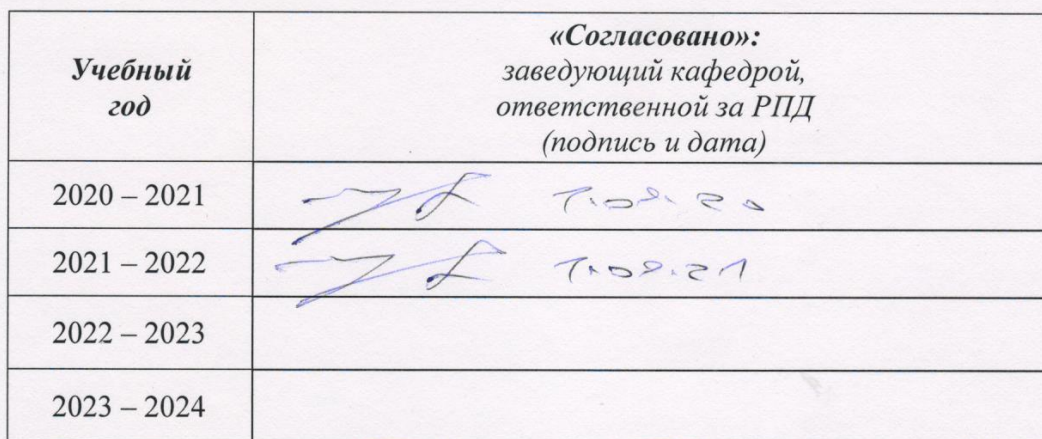 Учебный
год
«Согласовано»:
заведующий кафедрой,
ответственной за РПД
(подпись и дата)
2020 – 2021
1.09.20
2021 – 2022
1.09.21
2022 – 2023
2023 – 2024